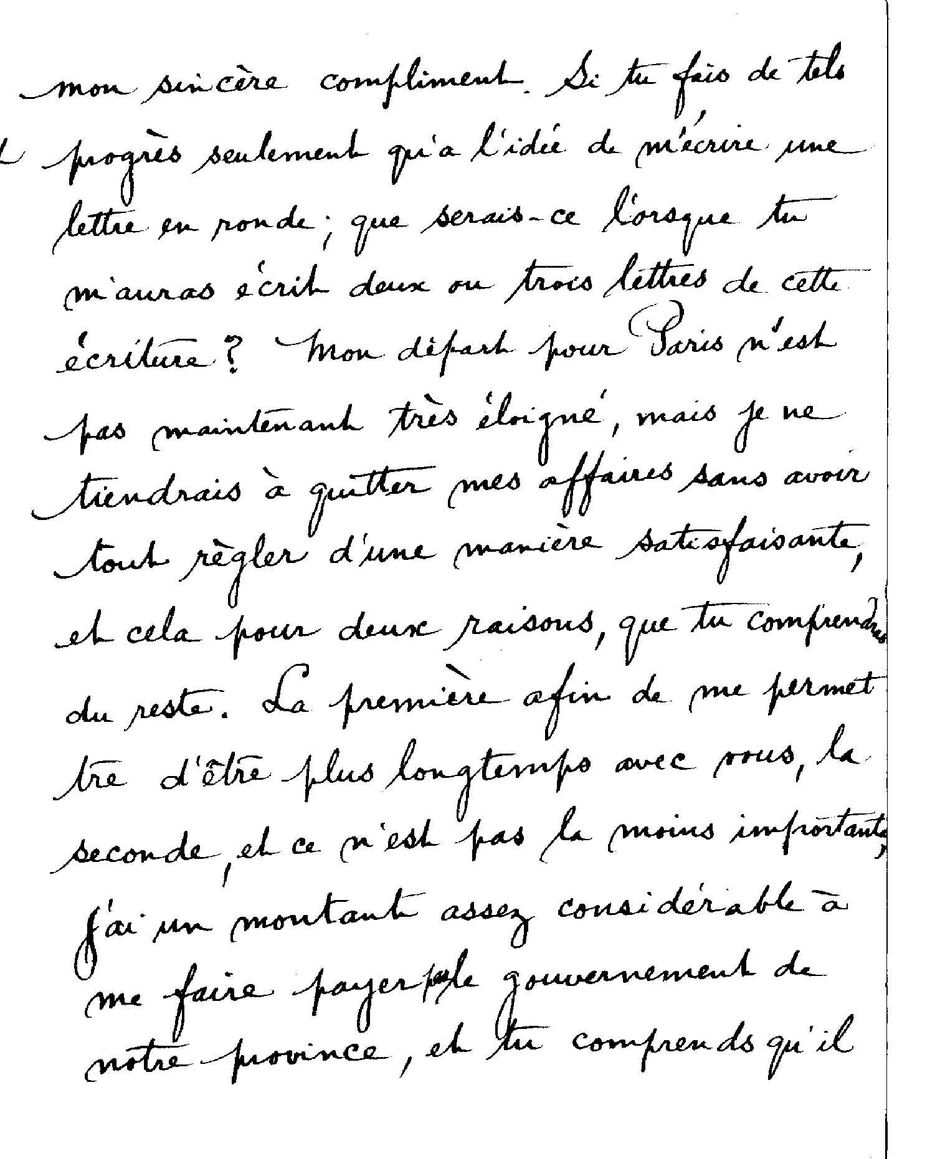 mon sincère compliment. Si tu fais de tels
progrès seulement qu'a l'idée de m'écrire une
lettre en ronde; que serais-ce l'orsque tu
m'auras écrit deux ou trois lettres de cette
écriture? Mon départ pour Paris n'est
pas maintenant très éloigné, mais je ne
tiendrais à quitter mes affaires sans avoir
tout règler d'une manière satisfaisante,
et cela pour deux raisons, que tu comprendras
du reste. La première afin de me permet
tre d'être plus longtemps avec vous, la
seconde, et ce n'est pas la moins importante,
j'ai un montant assez considérable à
me faire payer par le gouvernement de
notre province, et tu comprends qu'il